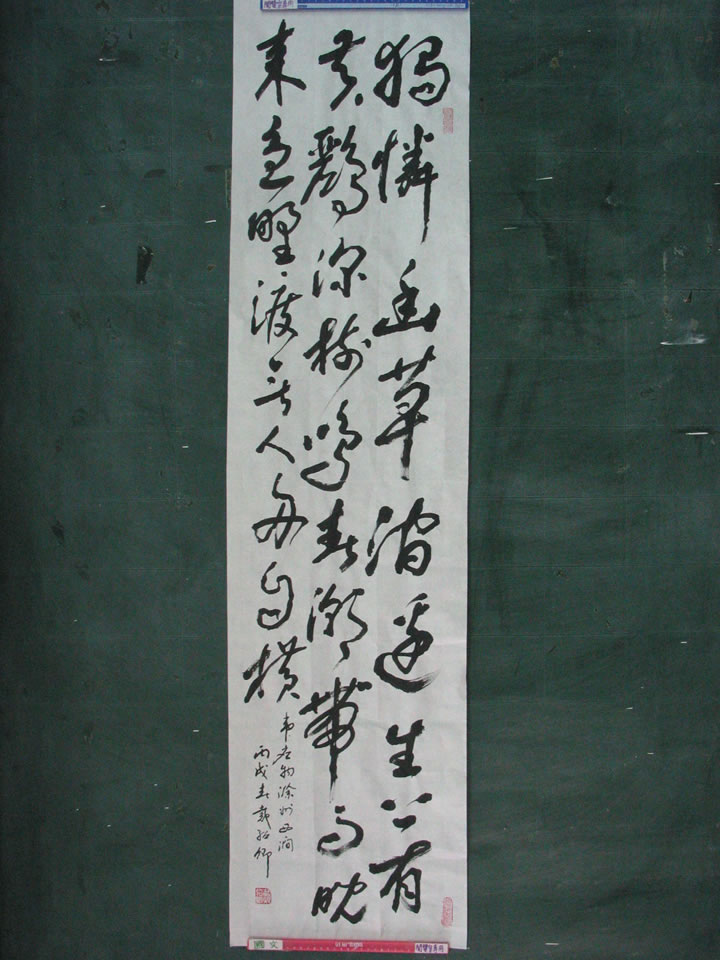 獨憐幽草澗邊生上有
黃鸝深樹鳴春潮帶雨晚
來急野渡無人舟自橫
韋應物滁州西澗
丙戌春